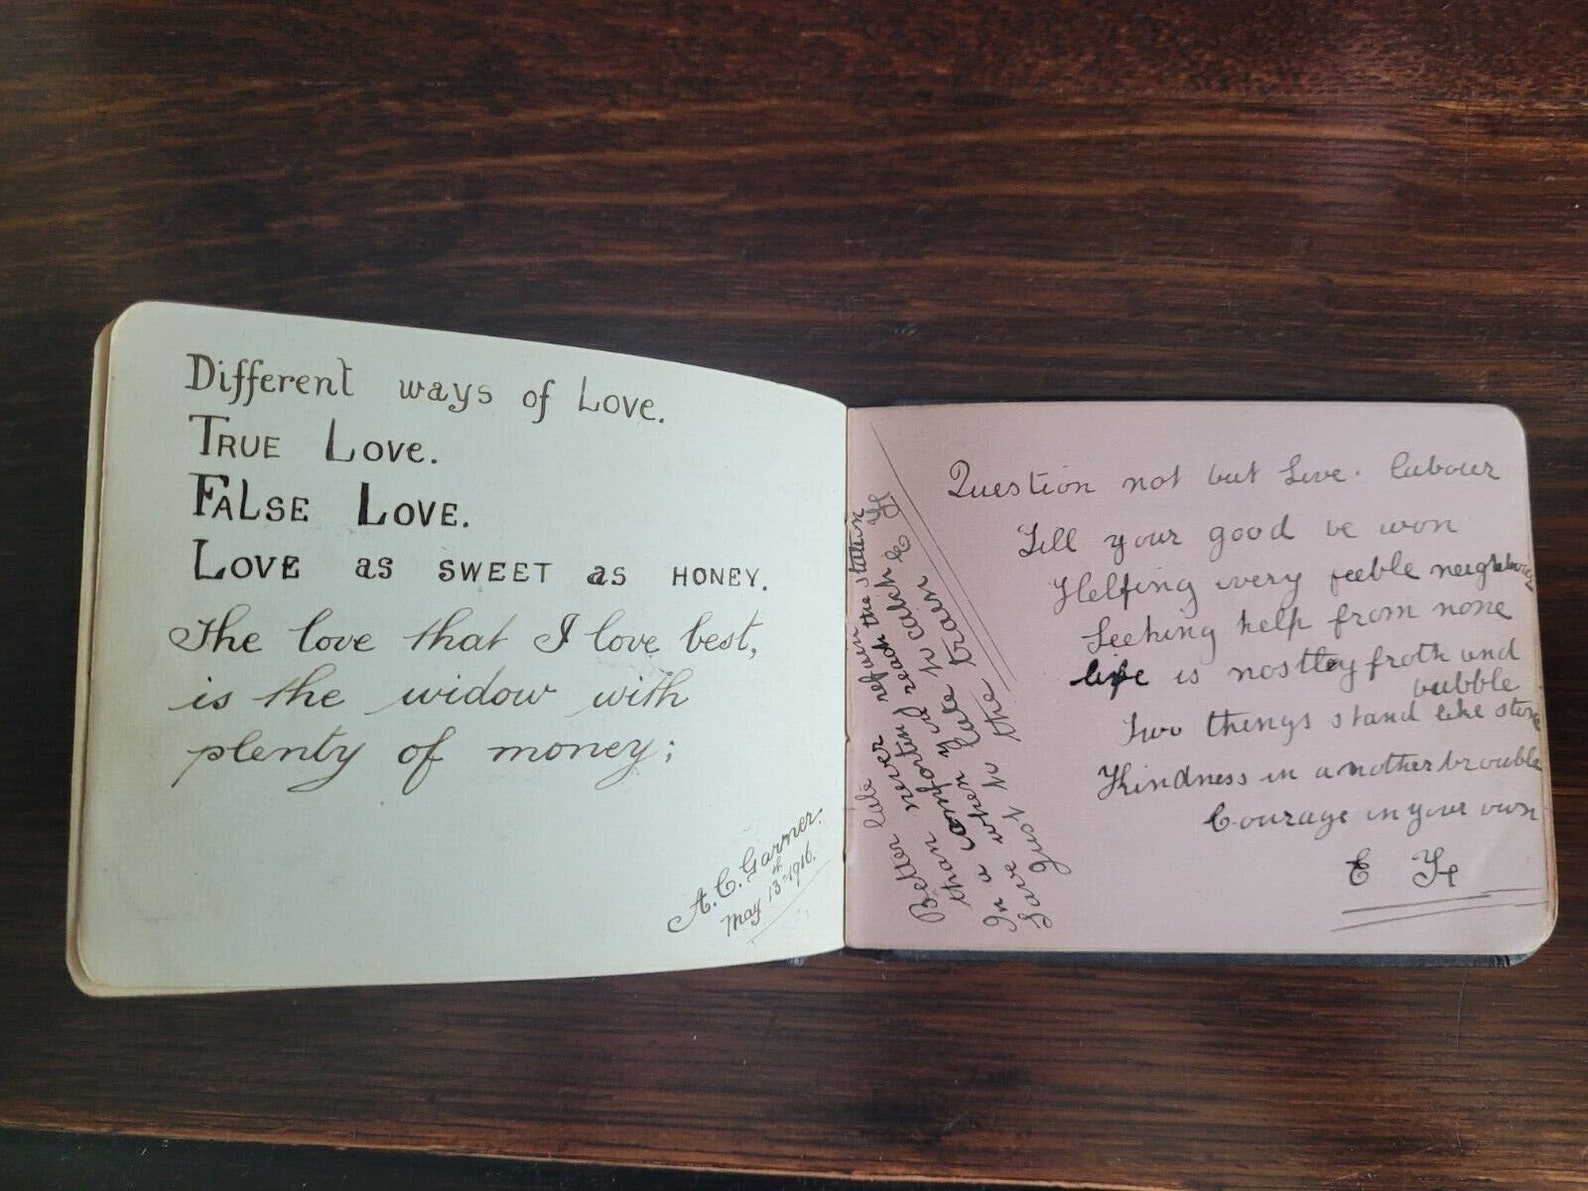 Different ways of Love.
TRUE LOVE.
FALSE LOVE.
LOVE as SWEET as HONEY.
The love that I love best,
is the widow with
plenty of money;
A. C. Garner.
May 13th 1916.
Better late
than never return the station
In a comfortin reach
Save when your late to catch
Just to the train
E Ye
Question not but Live. labour
Till your good be won
Helping every feeble neighbour
Seeking help from none
life is mostly froth and
bubble
Two things stand like stone
Kindness in another trouble
Courage in your own